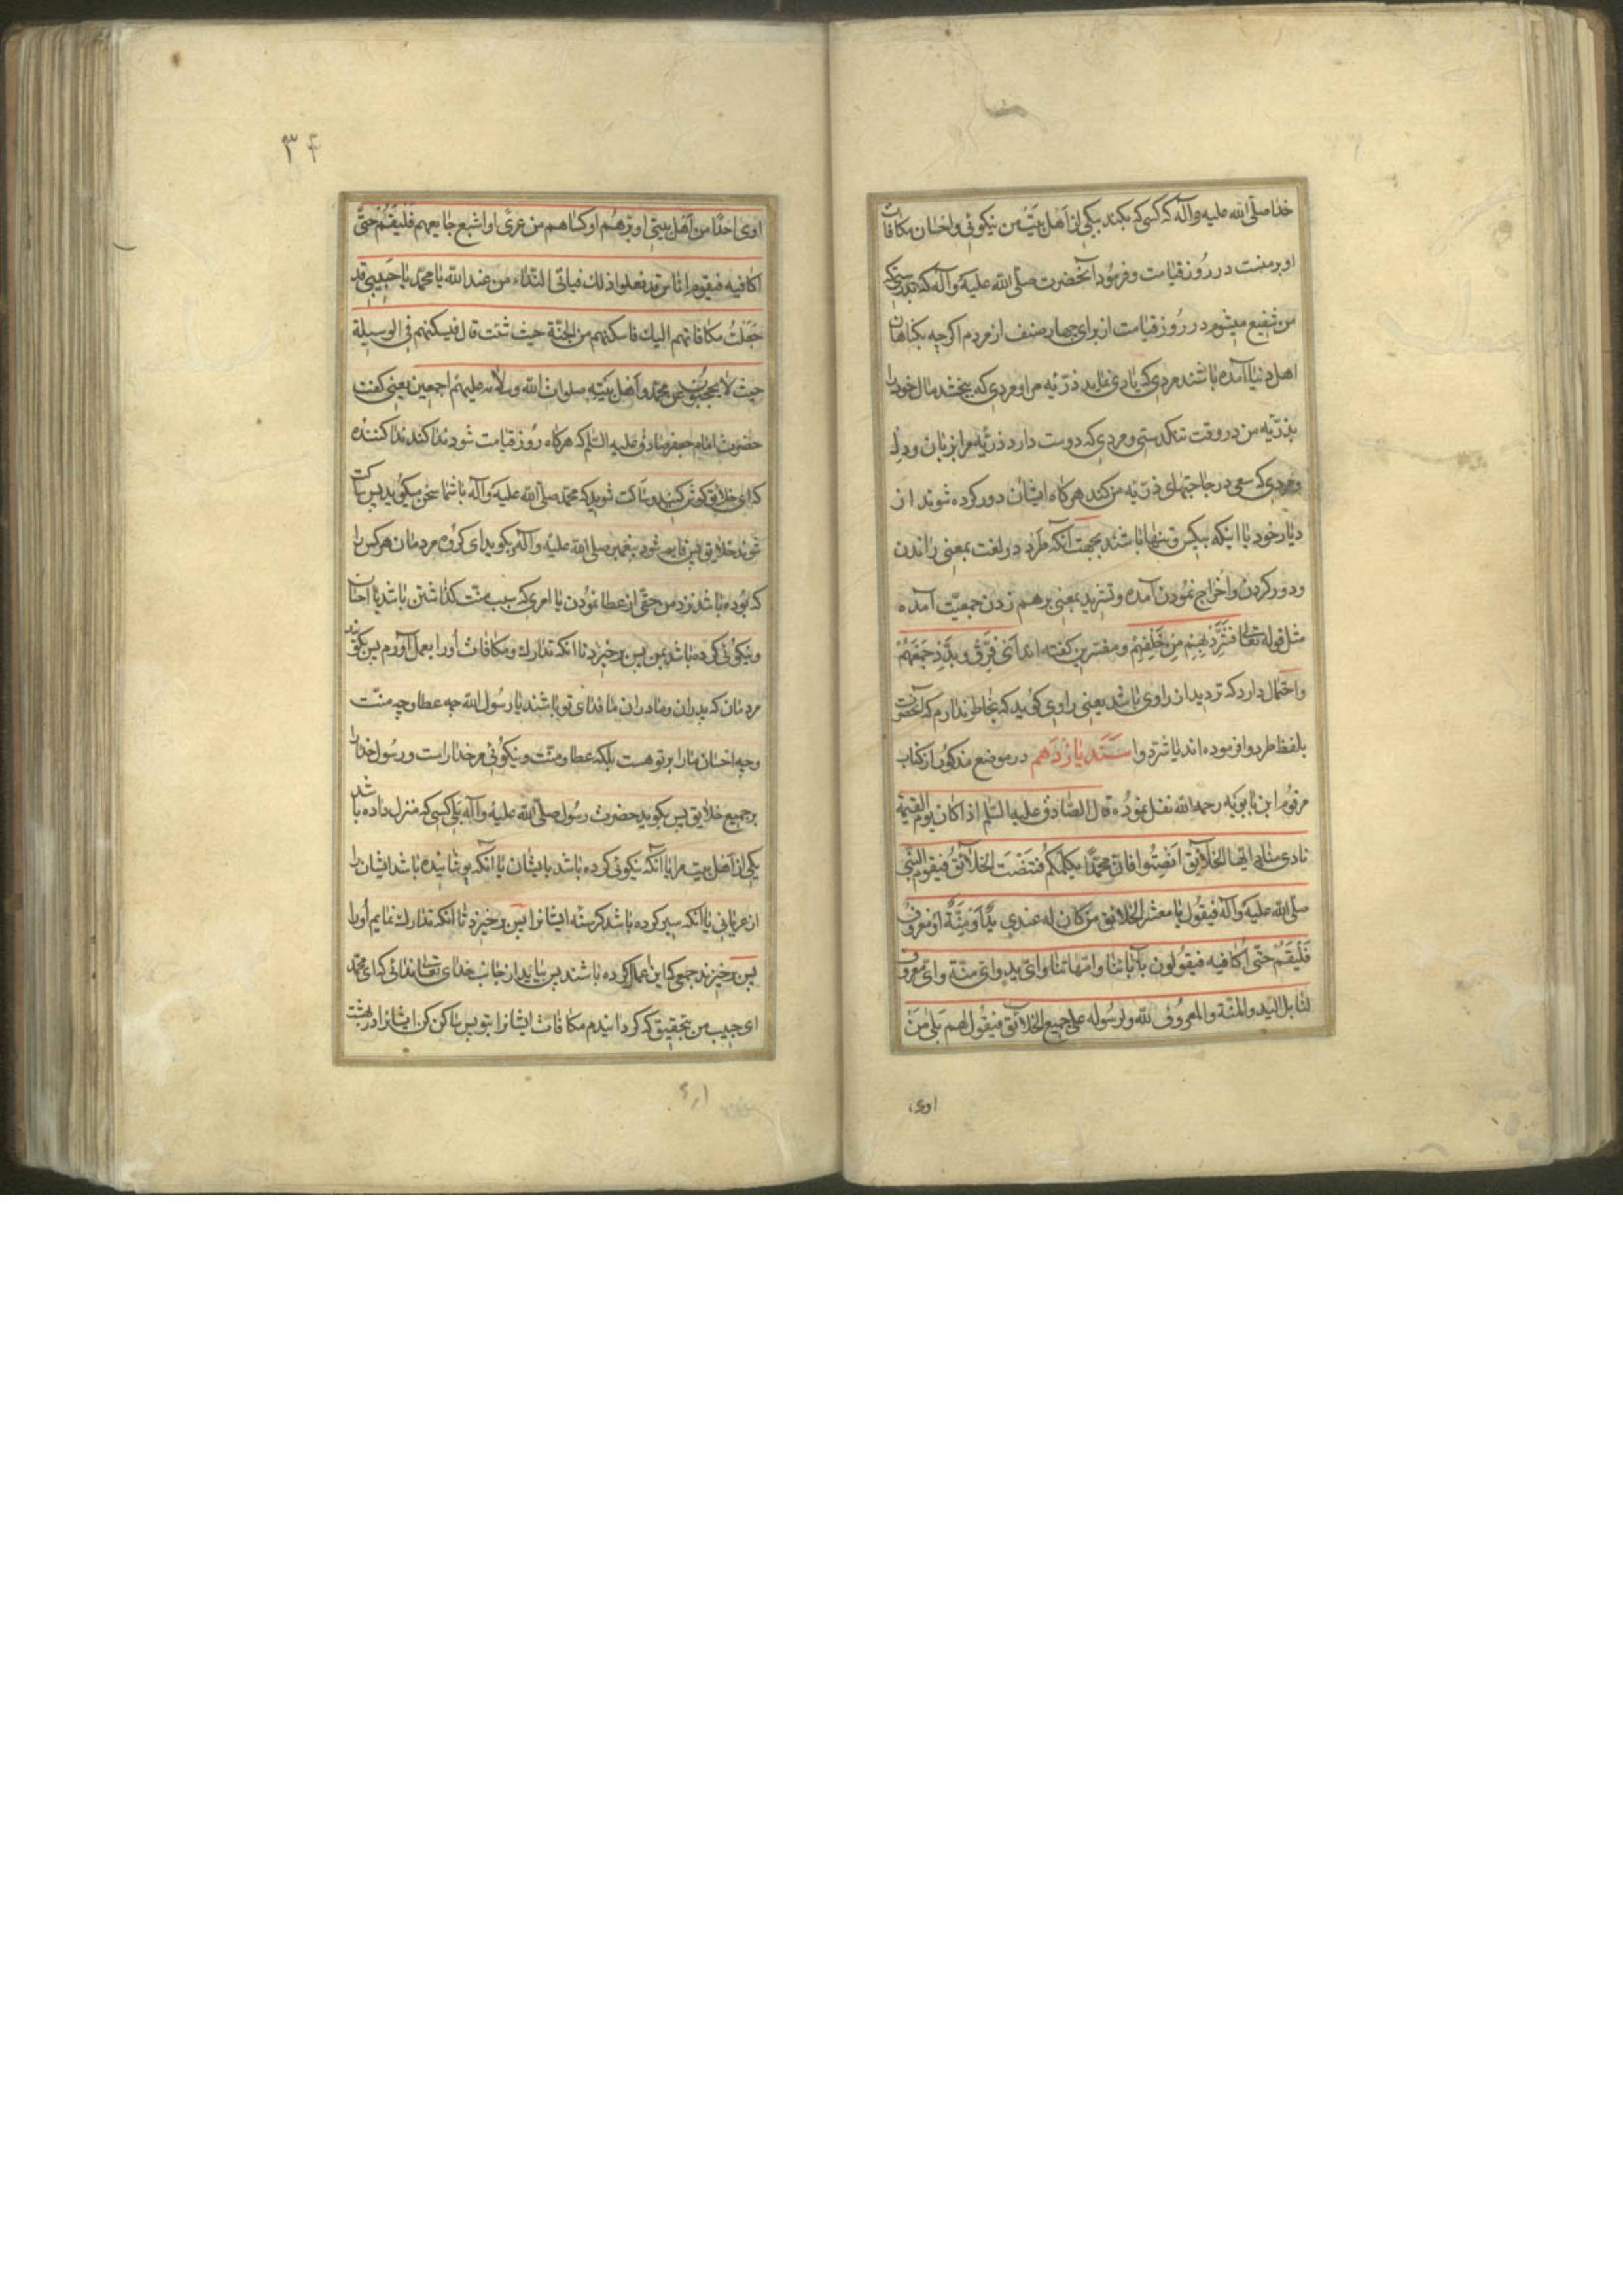 خدا صلّی الله علیه وآله که کسی که بکند بیکی از اهل بیت من نیکوئی و احسان مکافات
او بر منست در روز قیامت و فرمود آنحضرت صلّی الله علیه وآله که بدرستیکه
من شفیع میشوم در روز قیامت از برای چهار صنف از مردم اکرچه بکناهان
اهل دنیا آمده باشند مردی که یاری نماید ذرّیه مرا و مردی که ببخشد مال خود را
بذرّیه من در وقت تنکدستی و مردی که دوست دارد ذرّیه مرا بزبان و دل
و مردی که سعی در حاجتهای ذرّیه من کند هرکاه ایشان دور کرده شوند از
دیار خود یا اینکه بیکس و تنها باشند بجهت آنکه طرد در لغت بمعنی راندن
و دور کردن و اخراج نمودن آمده و تشرید بمعنی برهم زدن جمعیّت آمده
مثل قوله تعالی فَشَرِّدْ بِهِمْ مِنْ خَلْفِهِمْ و مفسّرین کفته اند ای فرّق و بدّد جمعهم
و احتمال دارد که تردید از راوی باشد یعنی راوی کوید که بخاطر ندارم که آنحضرت
بلفظ طردوا فرموده اند یا شردوا سند یازدهم در موضع مذکور از کتاب
مرقوم ابن بابویه رحمه الله نقل نموده قال الصّادق علیه السّلم اذا کان یوم القیمة
نادی مناد ایّها الخلایق انصتوا فانّ محمّدًا یکلّمکم فتنصت الخلائق فیقوم النّبی
صلّی الله علیه وآله فیقول یا معشر الخلائق من کان له عندی ید او منّة او معروف
فلیقم حتّی اکافیه فیقولون بآبائنا وامّهاتنا وای ید وای منّة وای معروف
لنا بل الید والمنّة والمعروف لله ولرسوله علی جمیع الخلایق فیقول لهم بلی من
اوی
۳۴
اوی احدًا من اهل بیتی او برّهم او کساهم من عری او اشبع جایعهم فلیقم حتّی
اکافیه فیقوم اناس قد فعلوا ذلک فیاتی النّداء من عند الله یا محمّد یا حبیبی قد
جعلت مکافاتهم الیک فاسکنهم من الجنّة حیث شئت قال فیسکنهم فی الوسیلة
حیث لا یحجبون عن محمّد واهل بیته صلوات الله وسلامه علیهم اجمعین یعنی کفت
حضرت امام جعفر صادق علیه السّلم که هرکاه روز قیامت شود ندا کند ندا کننده
که ای خلایق کوش کنید و ساکت شوید که محمّد صلّی الله علیه وآله با شما سخن میکوید پس ساکت
شوند خلایق پس قایم شود پیغمبر صلّی الله علیه وآله بکوید ای کروه مردمان هرکس را
که بوده باشد نزد من حقّی از عطا نمودن یا امری که سبب منّت کذاشتن باشد یا احسان
و نیکوئی کرده باشد بمن پس برخیزد تا آنکه تدارک و مکافات اورا بعمل آورم پس بکویند
مردمان که پدران و مادران ما فدای تو باشند یا رسول الله چه عطا و چه منّت
و چه احسان مارا بر تو هست بلکه عطا و منّت و نیکوئی مر خدا راست و رسول خدا را
بر جمیع خلایق پس بکوید حضرت رسول صلّی الله علیه وآله بلی کسی که منزل داده باشد
یکی از اهل بیت مرا یا آنکه نیکوئی کرده باشد بایشان یا آنکه پوشانیده باشد ایشان را
از عریانی یا آنکه سیر کرده باشد کرسنه ایشانرا پس برخیزد تا آنکه تدارک نمایم اورا
پس برخیزند جمعی که این اعمال کرده باشند پس بیاید از جانب خدای تعالی ندائی که ای محمّد
ای حبیب من بتحقیق که کردانیدم مکافات ایشانرا بتو پس ساکن کن ایشانرا در بهشت